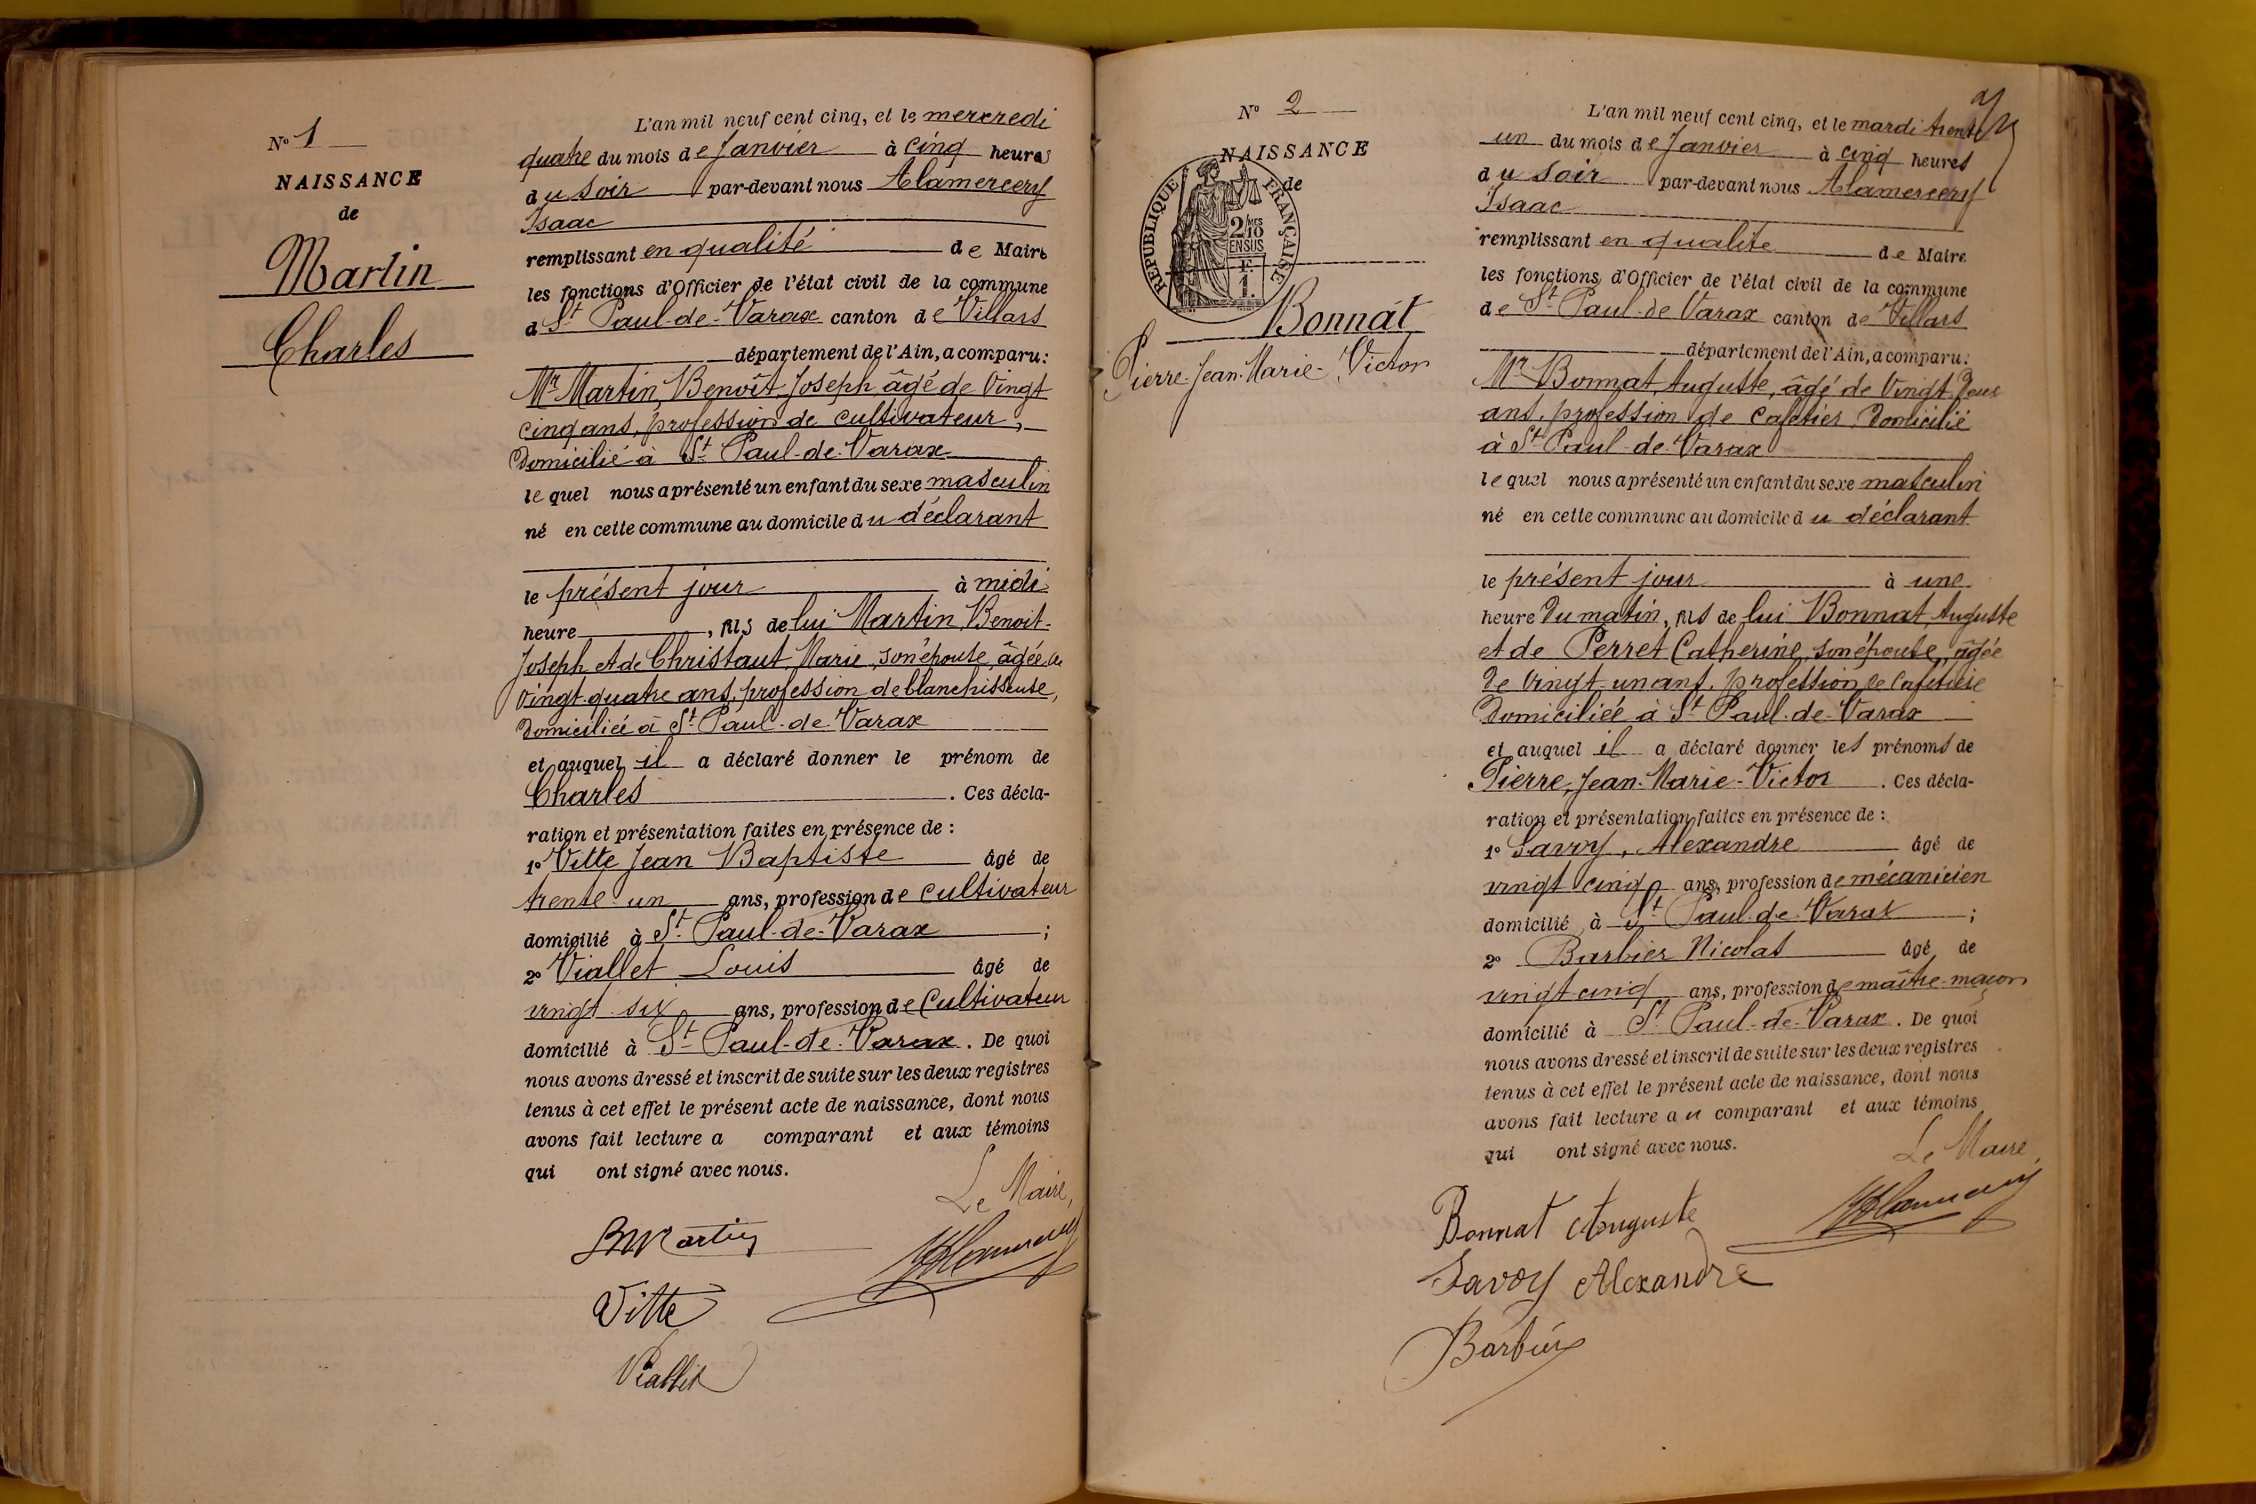 N° 1
NAISSANCE
de
Martin
Charles
L'an mil neuf cent cinq, et le mercredi
quatre du mois de Janvier à cinq heures
du soir par-devant nous Alamercery
Isaac
remplissant en qualité de Maire
les fonctions d'Officier de l'état civil de la commune
d St Paul-de-Varax canton de Villars
département de l'Ain, a comparu:
Mr Martin, Benoît Joseph, âgé de Vingt
cinq ans, profession de cultivateur,
Domicilié à St Paul-de-Varax
lequel nous a présenté un enfant du sexe masculin
né en cette commune au domicile du déclarant
le présent jour à midi
heure , fils de lui Martin, Benoit-
Joseph et de Christaut, Marie, son épouse, âgée de
Vingt-quatre ans, profession de blanchisseuse,
Domiciliée à St Paul-de-Varax
et auquel il a déclaré donner le prénom de
Charles . Ces décla-
ration et présentation faites en présence de :
1° Vitte Jean Baptiste âgé de
trente un ans, profession de cultivateur
domicilié à St Paul-de-Varax ;
2° Viallet Louis âgé de
vingt six ans, profession de Cultivateur
domicilié à St Paul-de-Varax . De quoi
nous avons dressé et inscrit de suite sur les deux registres
tenus à cet effet le présent acte de naissance, dont nous
avons fait lecture a comparant et aux témoins
qui ont signé avec nous.
Le Maire,
B Martin
Vitte
Viallet
N° 2
NAISSANCE
de
RÉPUBLIQUE FRANÇAISE
2/10
EN SUS
F.
1.
Bonnat
Pierre-Jean-Marie-Victor
L'an mil neuf cent cinq, et le mardi trente
un du mois de Janvier à cinq heures
du soir par-devant nous Alamercery
Isaac
remplissant en qualité de Maire
les fonctions d'Officier de l'état civil de la commune
de St Paul-de Varax canton de Villars
département de l'Ain, a comparu:
Mr Bonnat, Auguste, âgé de Vingt Deux
ans, profession de cafetier, Domicilié
à St Paul-de-Varax
lequel nous a présenté un enfant du sexe masculin
né en cette commune au domicile du déclarant
le présent jour à une
heure Du matin, fils de lui Bonnat, Auguste
et de Perret Catherine, son épouse, âgée
De Vingt-un ans, profession de Cafetière
Domiciliée à St Paul-de-Varax
et auquel il a déclaré donner les prénoms de
Pierre, Jean-Marie-Victor . Ces décla-
ration et présentation faites en présence de :
1° Savoy, Alexandre âgé de
vingt cinq ans, profession de mécanicien
domicilié à St Paul-de-Varax ;
2° Barbier Nicolas âgé de
vingt cinq ans, profession de maître-maçon
domicilié à St Paul-de-Varax. De quoi
nous avons dressé et inscrit de suite sur les deux registres
tenus à cet effet le présent acte de naissance, dont nous
avons fait lecture au comparant et aux témoins
qui ont signé avec nous.
Le Maire,
Bonnat Auguste
Savoy Alexandre
Barbier